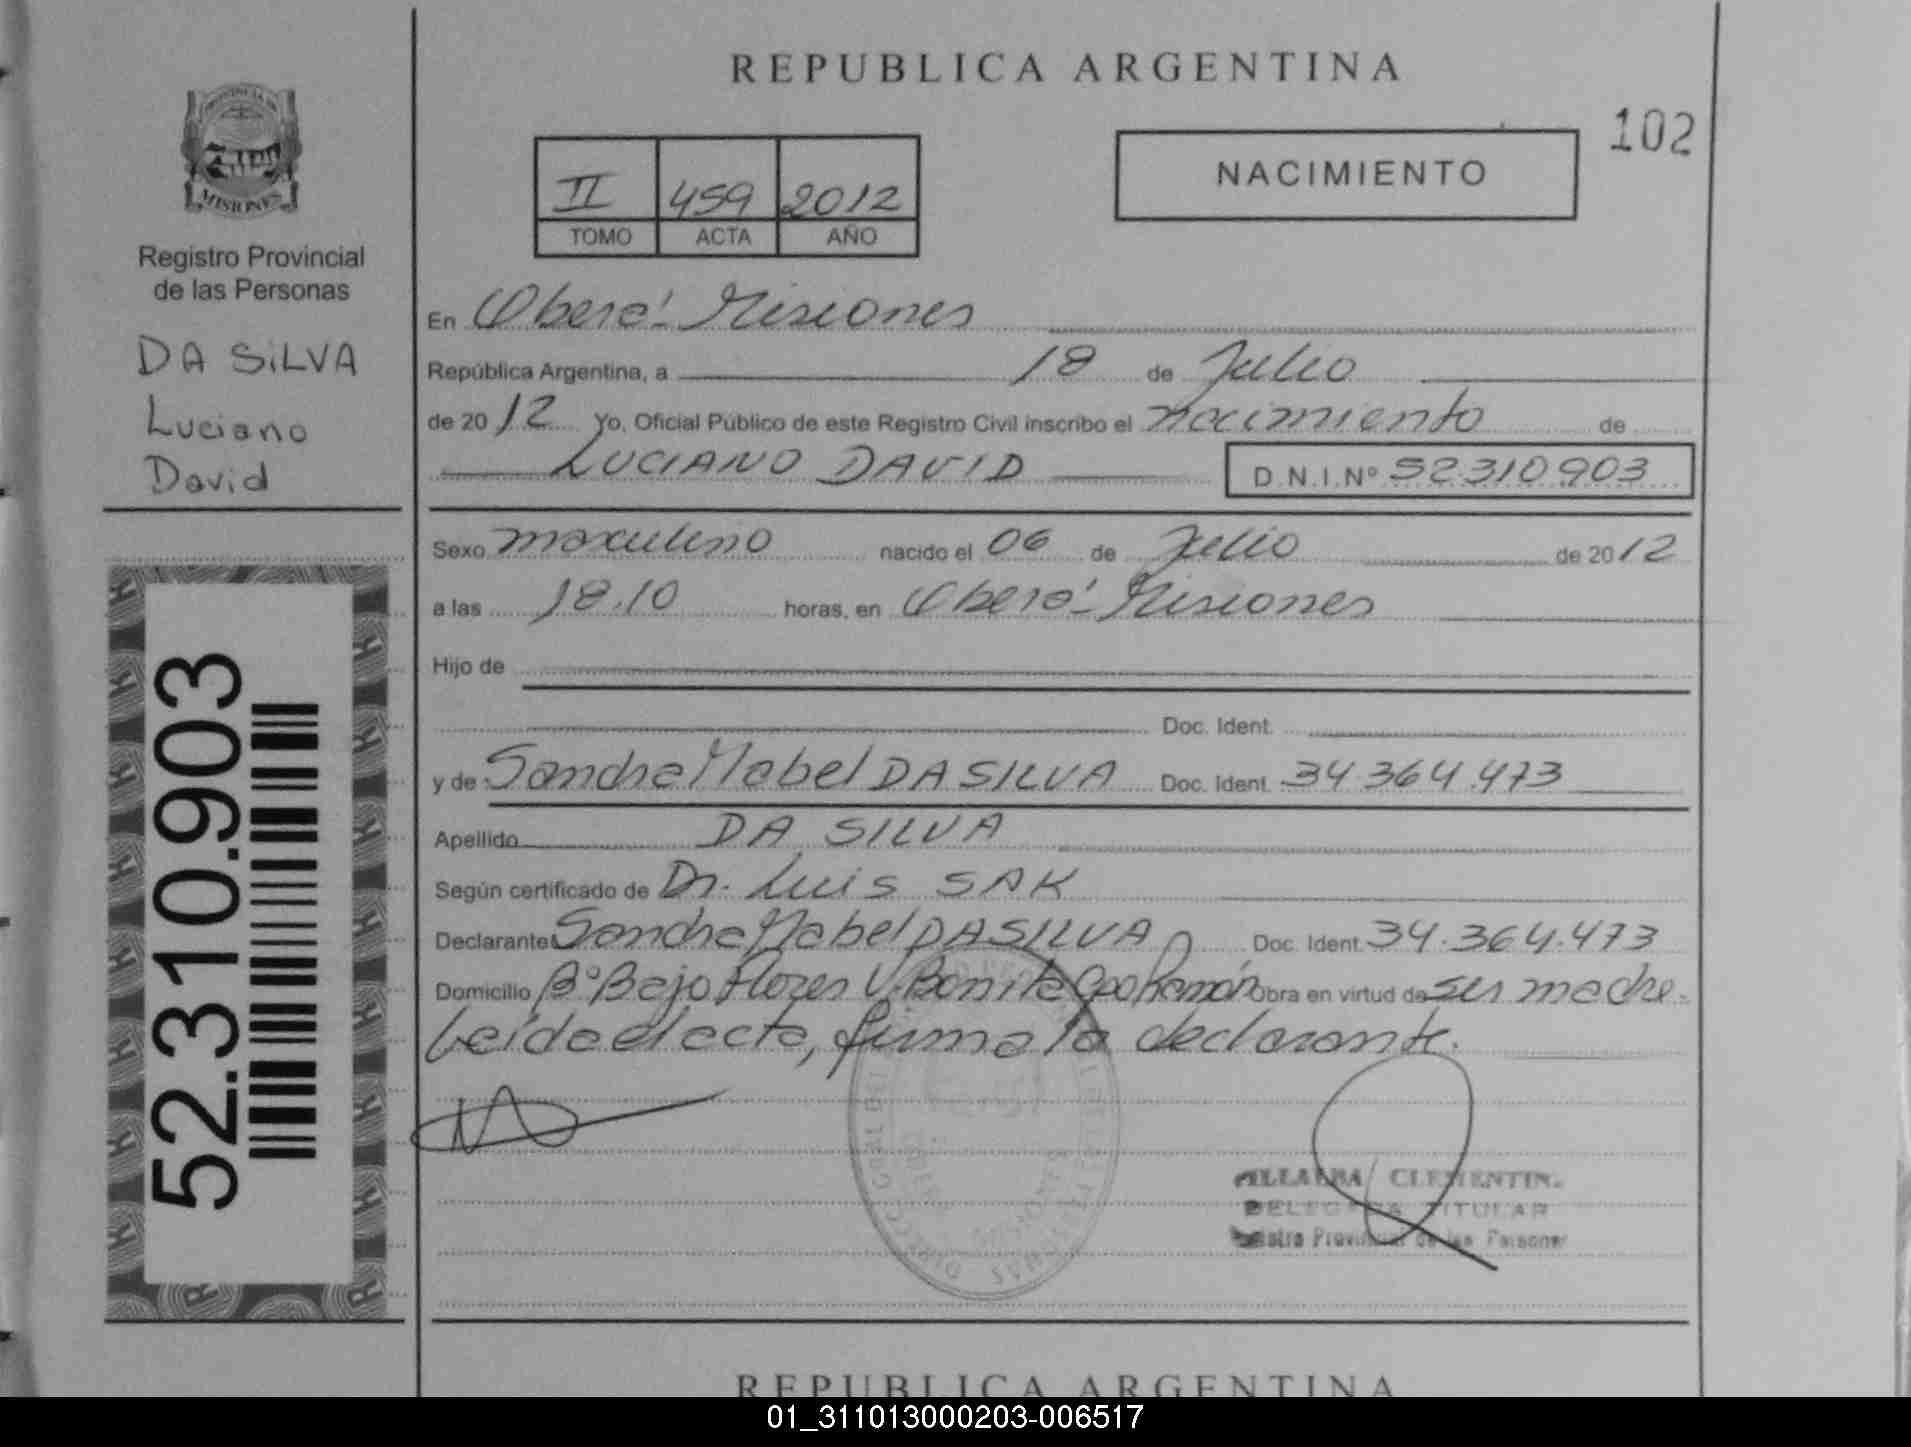 REPUBLICA ARGENTINA
102
NACIMIENTO
II 459 2012
TOMO ACTA AÑO
PROVINCIA DE
MISIONES
Registro Provincial
de las Personas
DA SILVA
Luciano
David
52.310.903
En Oberá - Misiones
República Argentina, a 18 de Julio
de 2012 Yo, Oficial Público de este Registro Civil inscribo el nacimiento de
LUCIANO DAVID D.N.I.Nº 52.310.903
Sexo masculino nacido el 06 de Julio de 2012
a las 18.10 horas, en Oberá - Misiones
Hijo de
Doc. Ident.
y de Sandra Mabel DA SILVA Doc. Ident. 34.364.473
Apellido DA SILVA
Según certificado de Dr. Luis SAK
Declarante Sandra Mabel DA SILVA Doc. Ident. 34.364.473
Domicilio Bº Bajo Flores V. Bonita Cpo Ramón Obra en virtud de ser madre.
Leída el acta, firma la declarante.
VILLALBA CLEMENTIN
DELEGADA TITULAR
Registro Provincial de las Personas
REPUBLICA ARGENTINA
01_311013000203-006517